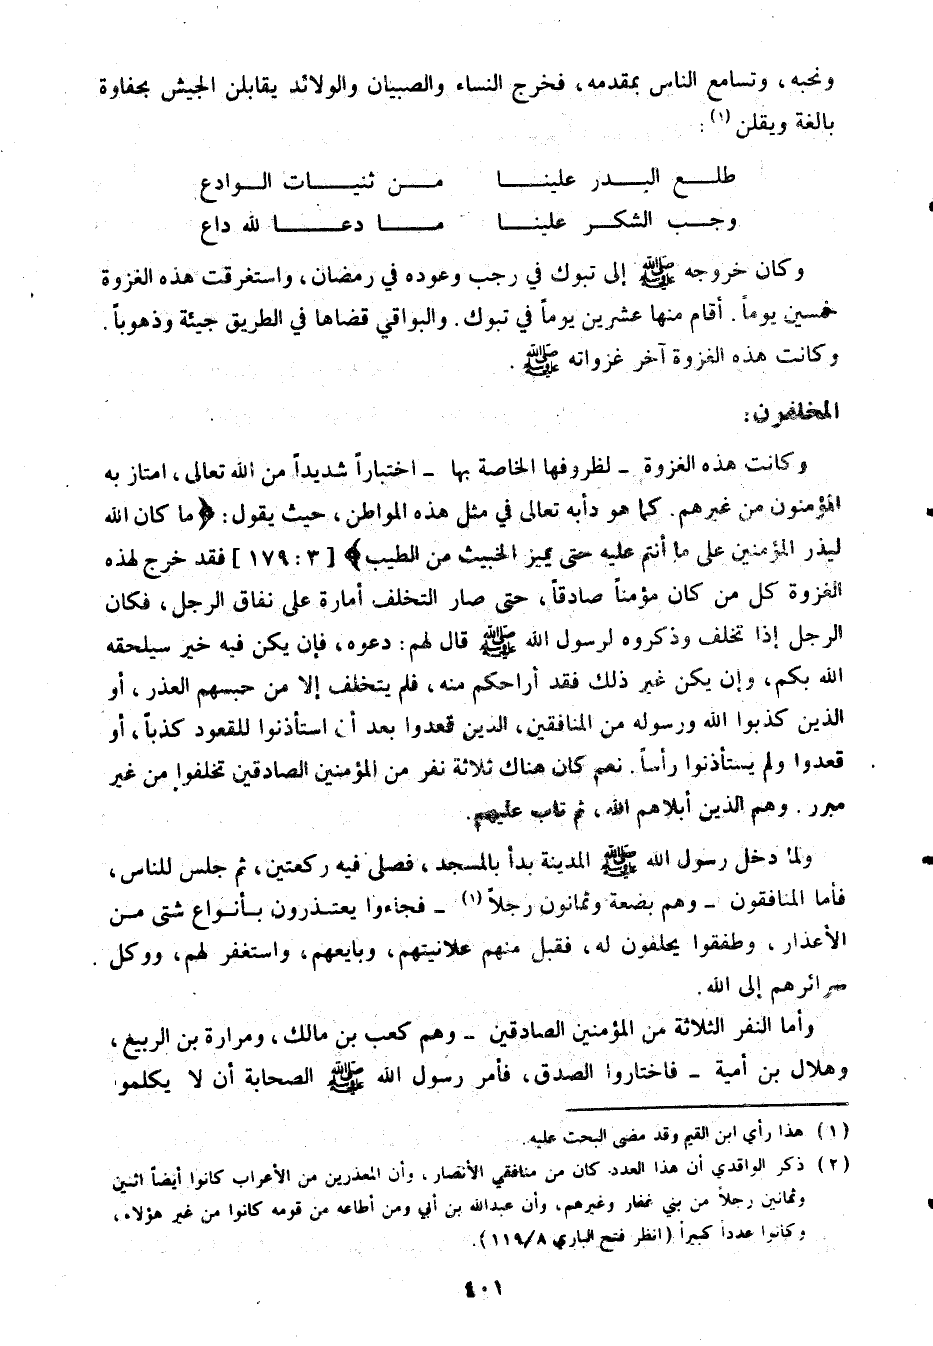 ونحبه، وتسامع الناس بمقدمه، فخرج النساء والصبيان والولائد يقابلن الجيش بحفاوة
بالغة ويقلن (١):
طلـــع البــــدر علينـــا مــــن ثنيـــات الــوادع
وجـــب الشكـــر علينـــا مــــا دعــــا لله داع
وكان خروجه ﷺ إلى تبوك في رجب وعوده في رمضان، واستغرقت هذه الغزوة
خمسين يوماً. أقام منها عشرين يوماً في تبوك. والبواقي قضاها في الطريق جيئة وذهوباً.
وكانت هذه الغزوة آخر غزواته ﷺ.
المخلفون:
وكانت هذه الغزوة ـ لظروفها الخاصة بها ـ اختباراً شديداً من الله تعالى، امتاز به
المؤمنون من غيرهم. كما هو دأبه تعالى في مثل هذه المواطن، حيث يقول: ﴿ما كان الله
ليذر المؤمنين على ما أنتم عليه حتى يميز الخبيث من الطيب﴾ [٣: ١٧٩] فقد خرج لهذه
الغزوة كل من كان مؤمناً صادقاً، حتى صار التخلف أمارة على نفاق الرجل، فكان
الرجل إذا تخلف وذكروه لرسول الله ﷺ قال لهم: دعوه، فإن يكن فيه خير سيلحقه
الله بكم، وإن يكن غير ذلك فقد أراحكم منه، فلم يتخلف إلا من حبسهم العذر، أو
الذين كذبوا الله ورسوله من المنافقين، الذين قعدوا بعد أن استأذنوا للقعود كذباً، أو
قعدوا ولم يستأذنوا رأساً. نعم كان هناك ثلاثة نفر من المؤمنين الصادقين تخلفوا من غير
مبرر. وهم الذين أبلاهم الله، ثم تاب عليهم.
ولما دخل رسول الله ﷺ المدينة بدأ بالمسجد، فصلى فيه ركعتين، ثم جلس للناس،
فأما المنافقون ـ وهم بضعة وثمانون رجلاً (١) ـ فجاءوا يعتـذرون بـأنـواع شتى مـن
الأعذار، وطفقوا يحلفون له، فقبل منهم علانيتهم، وبايعهم، واستغفر لهم، ووكل
سرائرهم إلى الله.
وأما النفر الثلاثة من المؤمنين الصادقين ـ وهم كعب بن مالك، ومرارة بن الربيع،
وهلال بن أمية ـ فاختاروا الصدق، فأمر رسول الله ﷺ الصحابة أن لا يكلموا
(١) هذا رأي ابن القيم وقد مضى البحث عليه.
(٢) ذكر الواقدي أن هذا العدد كان من منافقي الأنصار، وأن المعذرين من الأعراب كانوا أيضاً اثنين
وثمانين رجلاً من بني غفار وغيرهم، وأن عبدالله بن أبي ومن أطاعه من قومه كانوا من غير هؤلاء،
وكانوا عدداً كبيراً (انظر فتح الباري ٨/١١٩).
٤٠١